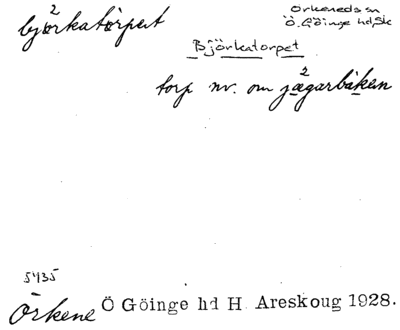 björkatòrpert
Örkeneds sn
Ö. Göinge hd, Sk
Björkatorpet
torp nv. om jægarbàken
5435
Örkene Ö Göinge hd H. Areskoug 1928.